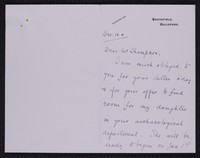 BROOMFIELD
GUILDFORD.
Dear Mr Thompson,
I am much obliged to
you for your letter &
for your offer to find
room for my daughter
in your archaeological
department. She will be
ready to begin on Jan 1st